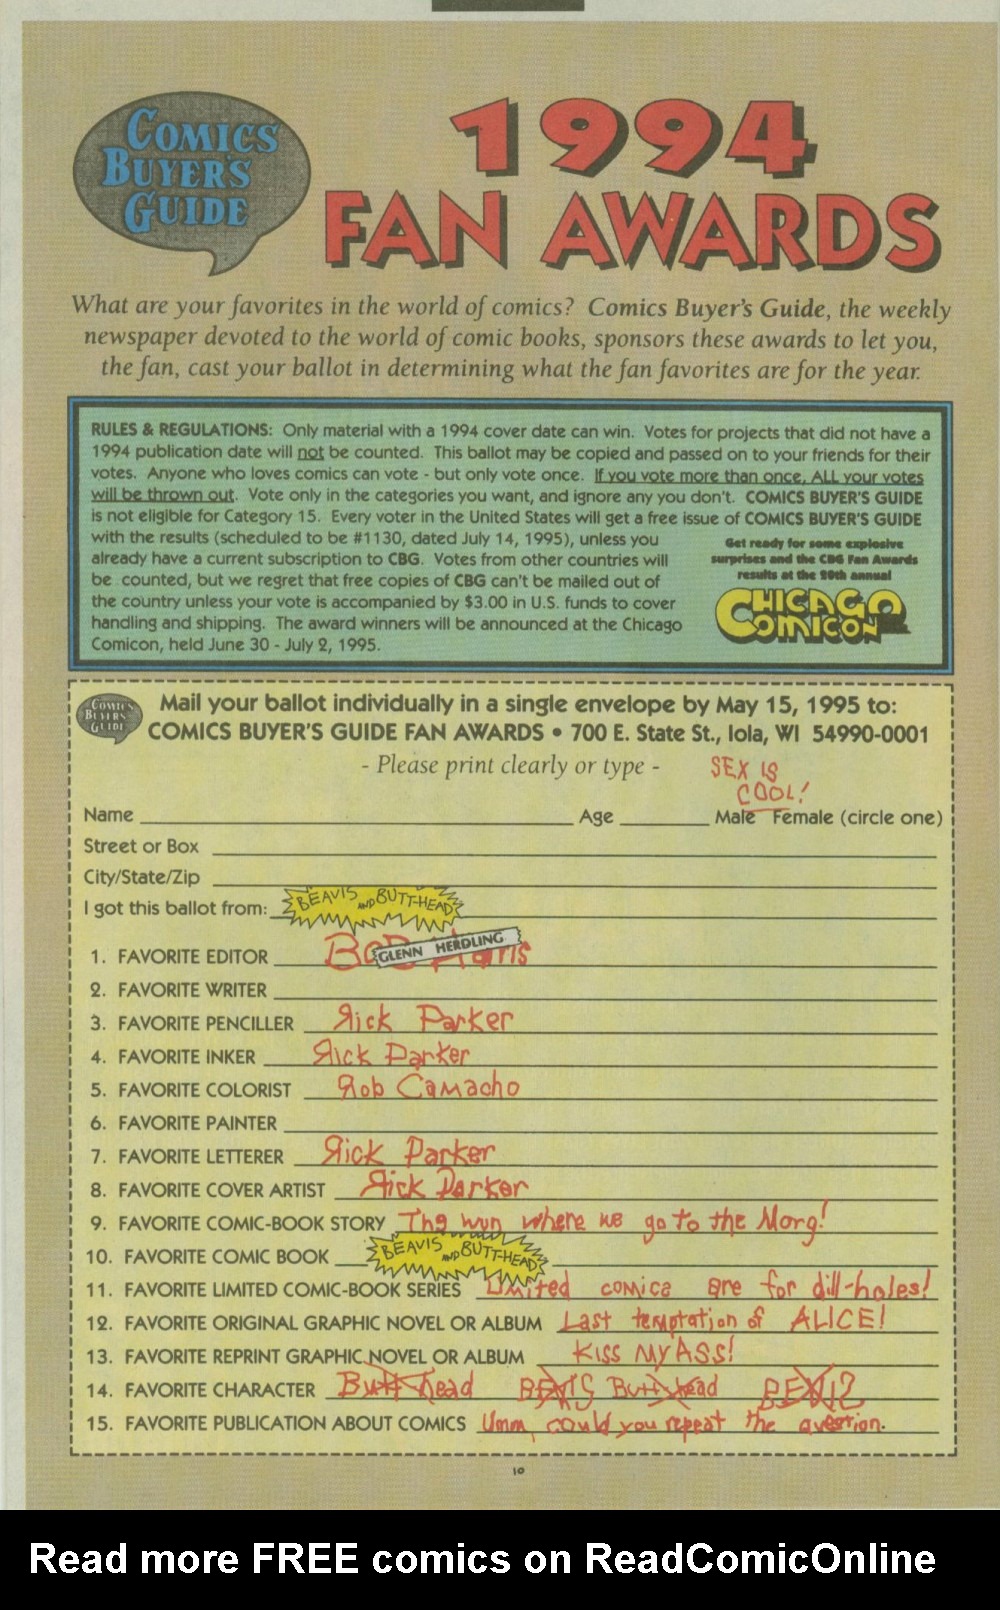 COMICS
BUYER'S
GUIDE
1994
FAN AWARDS
What are your favorites in the world of comics? Comics Buyer's Guide, the weekly
newspaper devoted to the world of comic books, sponsors these awards to let you,
the fan, cast your ballot in determining what the fan favorites are for the year.
RULES & REGULATIONS: Only material with a 1994 cover date can win. Votes for projects that did not have a
1994 publication date will not be counted. This ballot may be copied and passed on to your friends for their
votes. Anyone who loves comics can vote - but only vote once. If you vote more than once, ALL your votes
will be thrown out. Vote only in the categories you want, and ignore any you don't. COMICS BUYER'S GUIDE
is not eligible for Category 15. Every voter in the United States will get a free issue of COMICS BUYER'S GUIDE
with the results (scheduled to be #1130, dated July 14, 1995), unless you
already have a current subscription to CBG. Votes from other countries will
be counted, but we regret that free copies of CBG can't be mailed out of
the country unless your vote is accompanied by $3.00 in U.S. funds to cover
handling and shipping. The award winners will be announced at the Chicago
Comicon, held June 30 - July 2, 1995.
Get ready for some explosive
surprises and the CBG Fan Awards
results at the 20th annual
CHICAGO
COMICON
COMICS
BUYER'S
GUIDE
Mail your ballot individually in a single envelope by May 15, 1995 to:
COMICS BUYER'S GUIDE FAN AWARDS • 700 E. State St., Iola, WI 54990-0001
- Please print clearly or type -
SEX IS
COOL!
Name Age Male Female (circle one)
Street or Box
City/State/Zip
I got this ballot from: BEAVIS AND BUTT-HEAD
1. FAVORITE EDITOR BOB GLENN HERDLING
2. FAVORITE WRITER
3. FAVORITE PENCILLER Rick Parker
4. FAVORITE INKER Rick Parker
5. FAVORITE COLORIST Rob Camacho
6. FAVORITE PAINTER
7. FAVORITE LETTERER Rick Parker
8. FAVORITE COVER ARTIST Rick Parker
9. FAVORITE COMIC-BOOK STORY The wun where we go to the Morg!
10. FAVORITE COMIC BOOK BEAVIS AND BUTT-HEAD
11. FAVORITE LIMITED COMIC-BOOK SERIES Limited comics are for dill-holes!
12. FAVORITE ORIGINAL GRAPHIC NOVEL OR ALBUM Last temptation of ALICE!
13. FAVORITE REPRINT GRAPHIC NOVEL OR ALBUM KISS MY ASS!
14. FAVORITE CHARACTER Butt-head BEVIS Butt-head BEVIS
15. FAVORITE PUBLICATION ABOUT COMICS Umm, could you repeat the question.
10
Read more FREE comics on ReadComicOnline